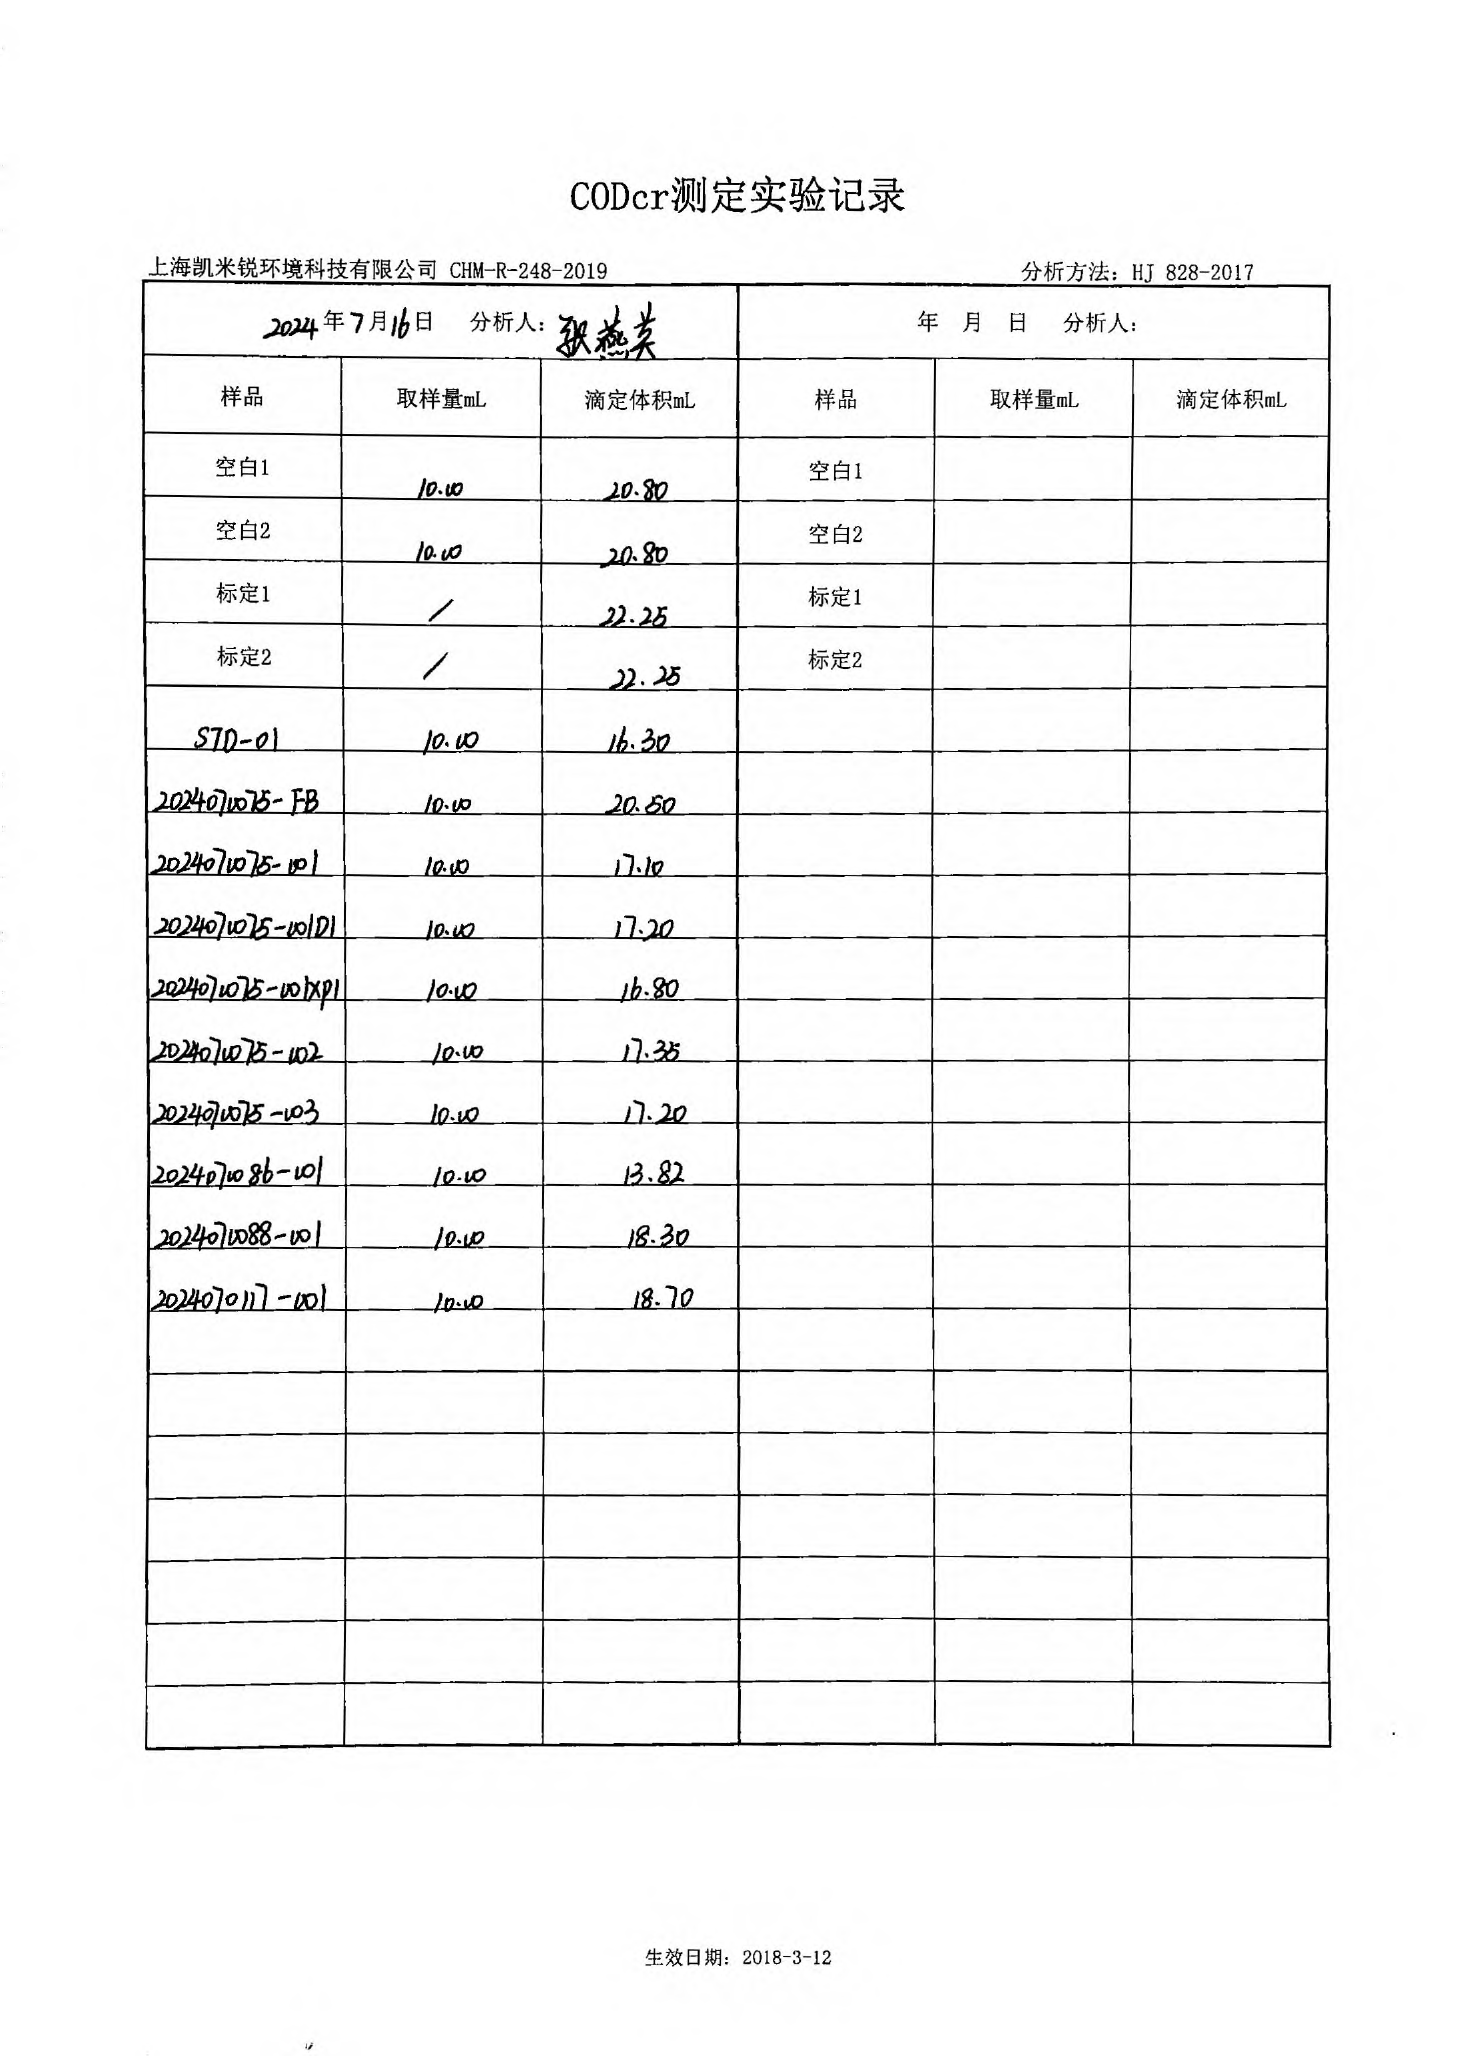 CODcr测定实验记录
上海凯米锐环境科技有限公司 CHM-R-248-2019 分析方法: HJ 828-2017
2024年7月16日 分析人: 张燕英 年 月 日 分析人:
样品 取样量mL 滴定体积mL 样品 取样量mL 滴定体积mL
空白1 10.00 20.80 空白1
空白2 10.00 20.80 空白2
标定1 / 22.25 标定1
标定2 / 22.25 标定2
STD-01 10.00 16.30
2024070075-FB 10.00 20.50
2024070075-001 10.00 17.10
2024070075-001D1 10.00 17.20
2024070075-001XP1 10.00 16.80
2024070075-002 10.00 17.35
2024070075-003 10.00 17.20
2024070086-001 10.00 13.82
2024070088-001 10.00 18.30
2024070117-001 10.00 18.70
生效日期: 2018-3-12